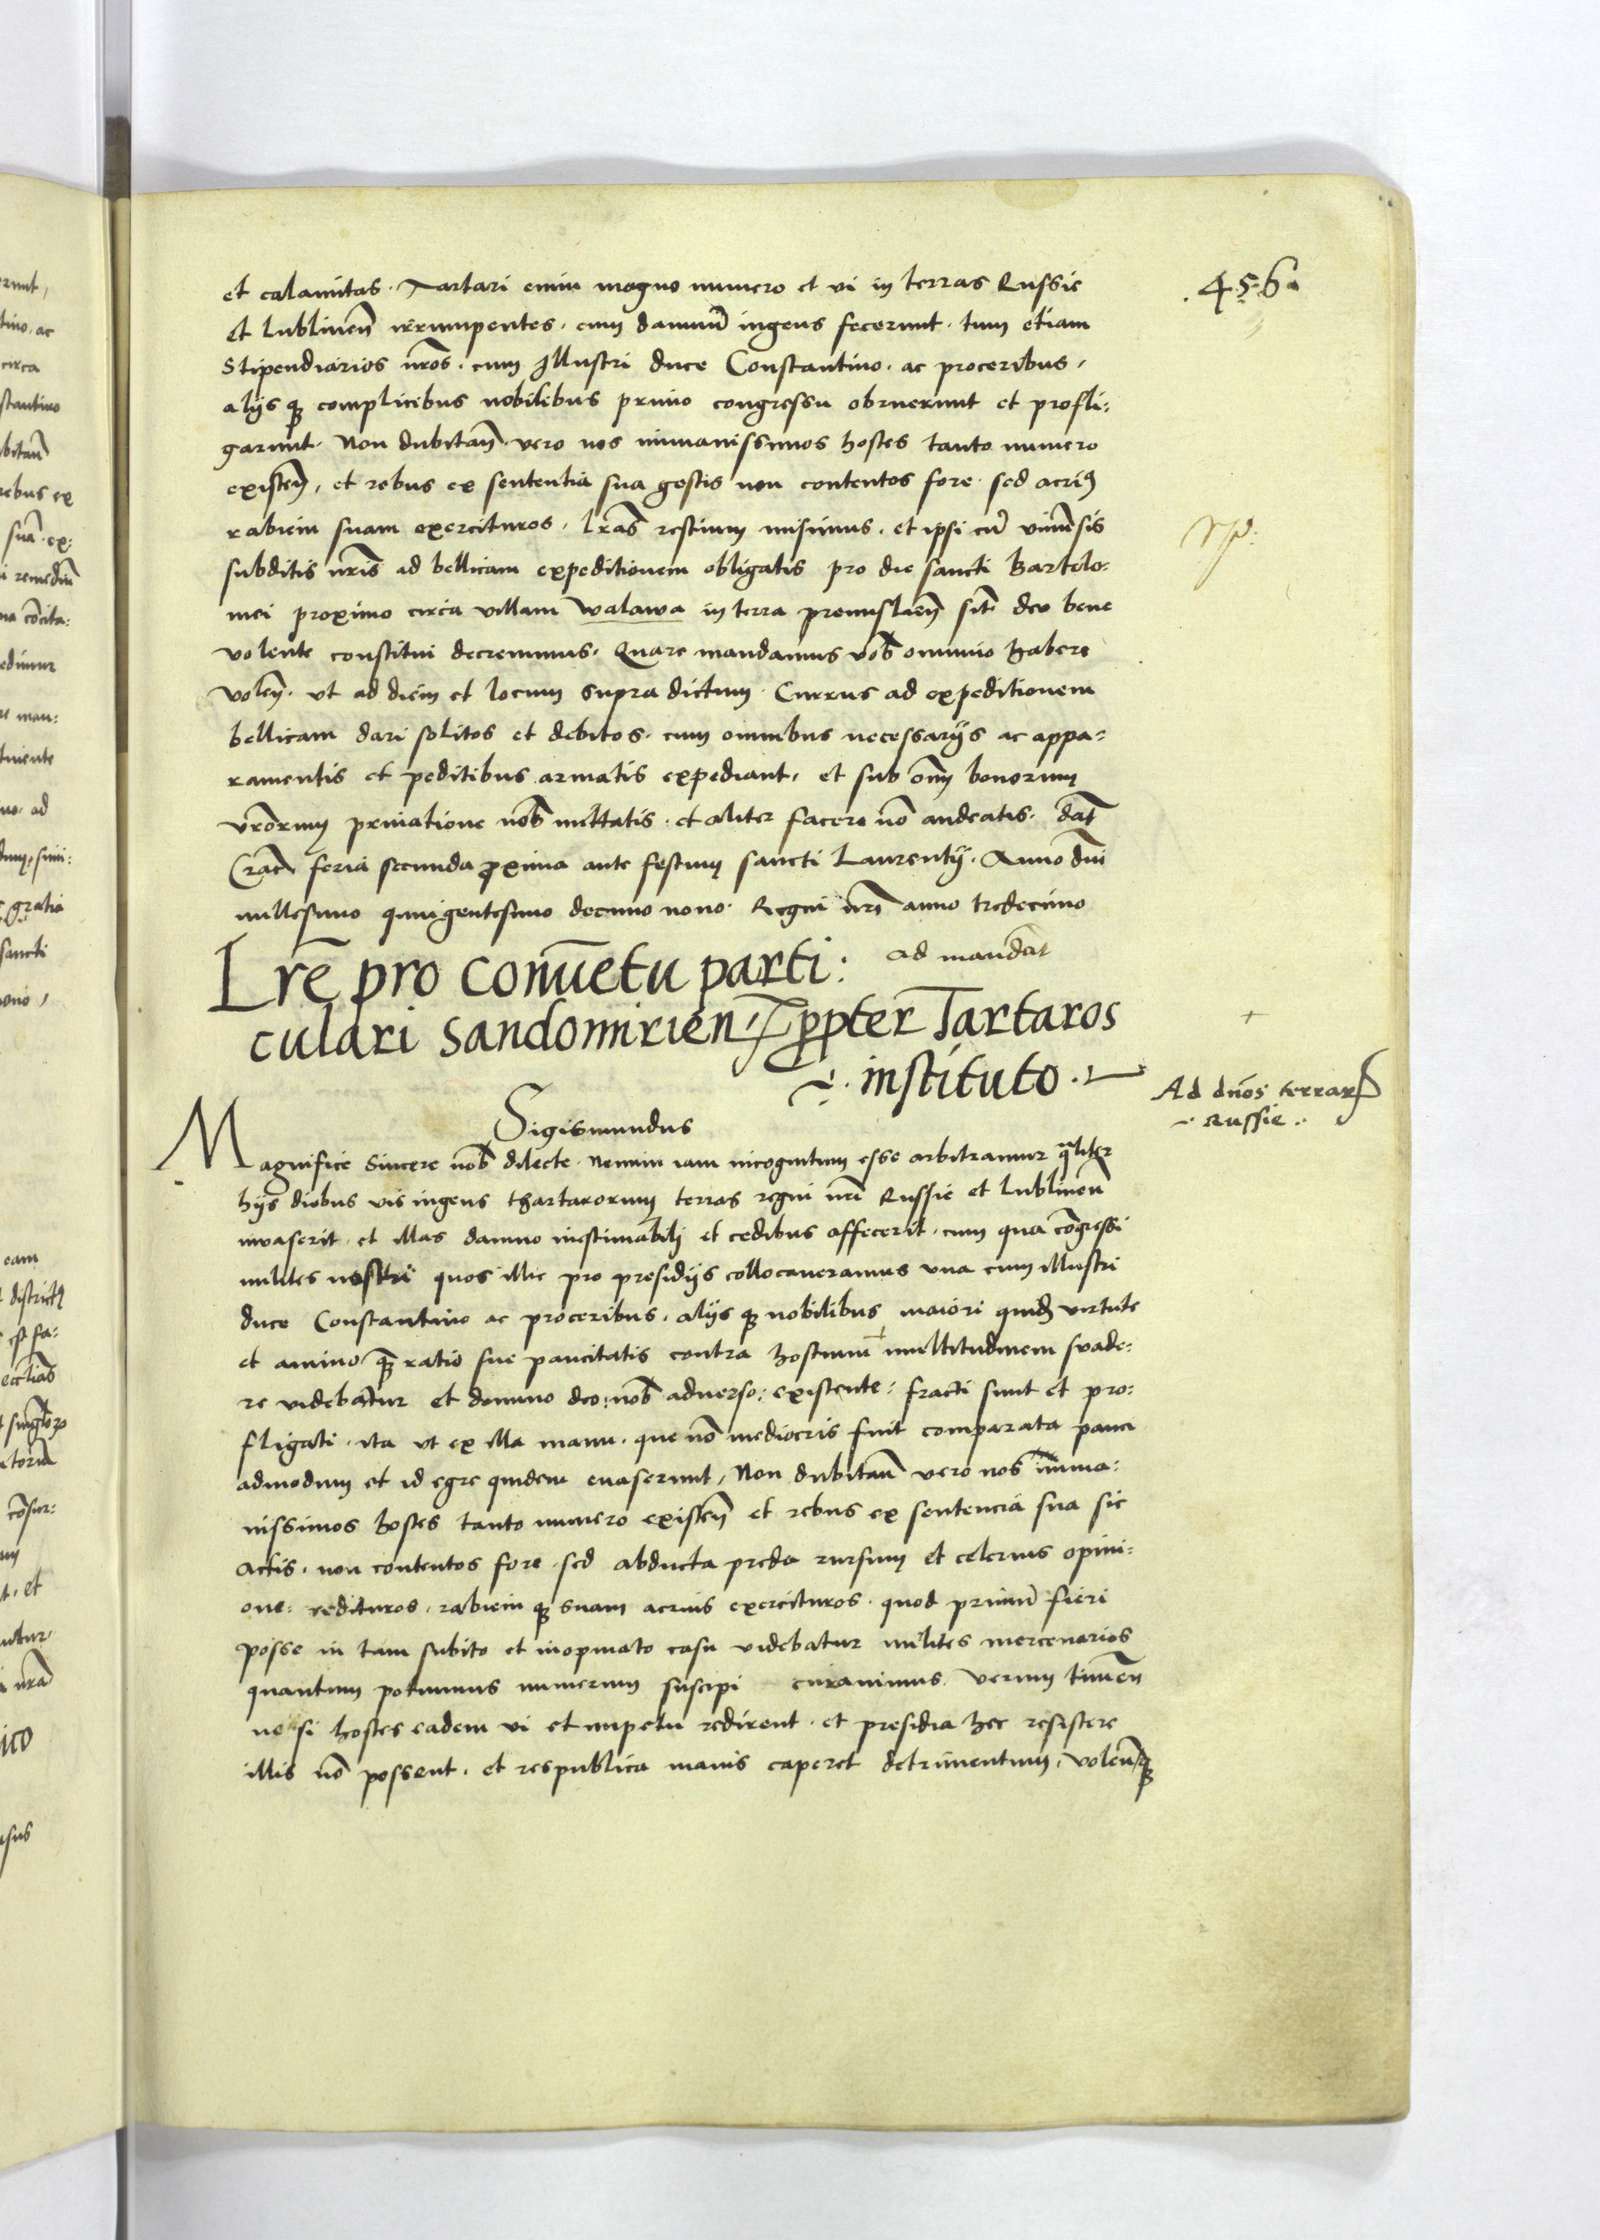 .4.5.6.
et calamitas. Tartari enim magno numero et vi in terras Russie
et lublineñ irrumpentes. cum damnū ingens fecerunt. tum etiam
Stipendiarios nr̄os. cum Illustri duce Constantino. ac proceribus,
alijs q3 complicibus nobilibus primo congressu obruerunt et profli:
garunt. Non dubitañ. vero nos immanissimos hostes tanto numero
existeñ, et rebus ex sententia sua gestis non contentos fore. sed acri9
rabiem suam exercituros, lr̄as restium misimus. et ipsi cū vniūsis
subditis nr̄is ad bellicam expeditionem obligatis pro die sancti Bartolo:
mei proximo circa villam walawa in terra premislieñ sit̄ deo bene
volente constitui decreuimus. Quare mandamus vob̄ omnino habere
voleñ. vt ad diem et locum supra dictum. Currus ad expeditionem
bellicam dari solitos et debitos. cum omnibus necessarijs ac appa=
ramentis et peditibus armatis expediant, et sub om̄ bonorum
vr̄orum priuatione nob̄ mittatis. et aliter facere nō audeatis. dat̄
Crac̄ feria secunda proxima ante festum sancti Laurentij. Anno dn̄i
millesimo quingentesimo decimo nono. Regni nr̄i anno tredecimo
ad mandat
Lrē pro conuētu parti:
culari Sandomirien. propter Tartaros
instituto.
Ad dn̄os terrar
Russie.
Sigismundus
Magnifice Sincere nob̄ dilecte. Nemini iam incognitum esse arbitramur qualiter
hijs diebus vis ingens thartarorum terras regni nr̄i Russie et lublineñ
inuaserit. et illas damno inestimabili et cedibus affecerit. cum qua cōgressi
milites nostri quos illic pro presidijs collocaueramus vna cum illustri
duce Constantino ac proceribus. alijs q3 nobilibus maiori quidē virtute
et animo q̄ ratio sue paucitatis contra hostium multitudinem suade:
re videbatur et domino deo: nob̄ aduerso: existente: fracti sunt et pro:
fligati. ita vt ex illa manu. que nō mediocris fuit comparata pauci
admodum et id egre quidem euaserunt, Non dubitañ vero nos imma:
nissimos hostes tanto numero existeñ et rebus ex sentencia sua sic
actis. non contentos fore. sed abducta preda rursum et celerius opini:
one: redituros. rabiem q3 suam acrius exercituros. quod primū fieri
posse in tam subito et inopinato casu videbatur milites mercenarios
quantum potuimus numerum suscipi curauimus. verum timeñ
ne si hostes eadem vi et impetu redirent. et presidia hec resistere
illis nō possent. et respublica maius caperet detrimentum. Voleñ q3